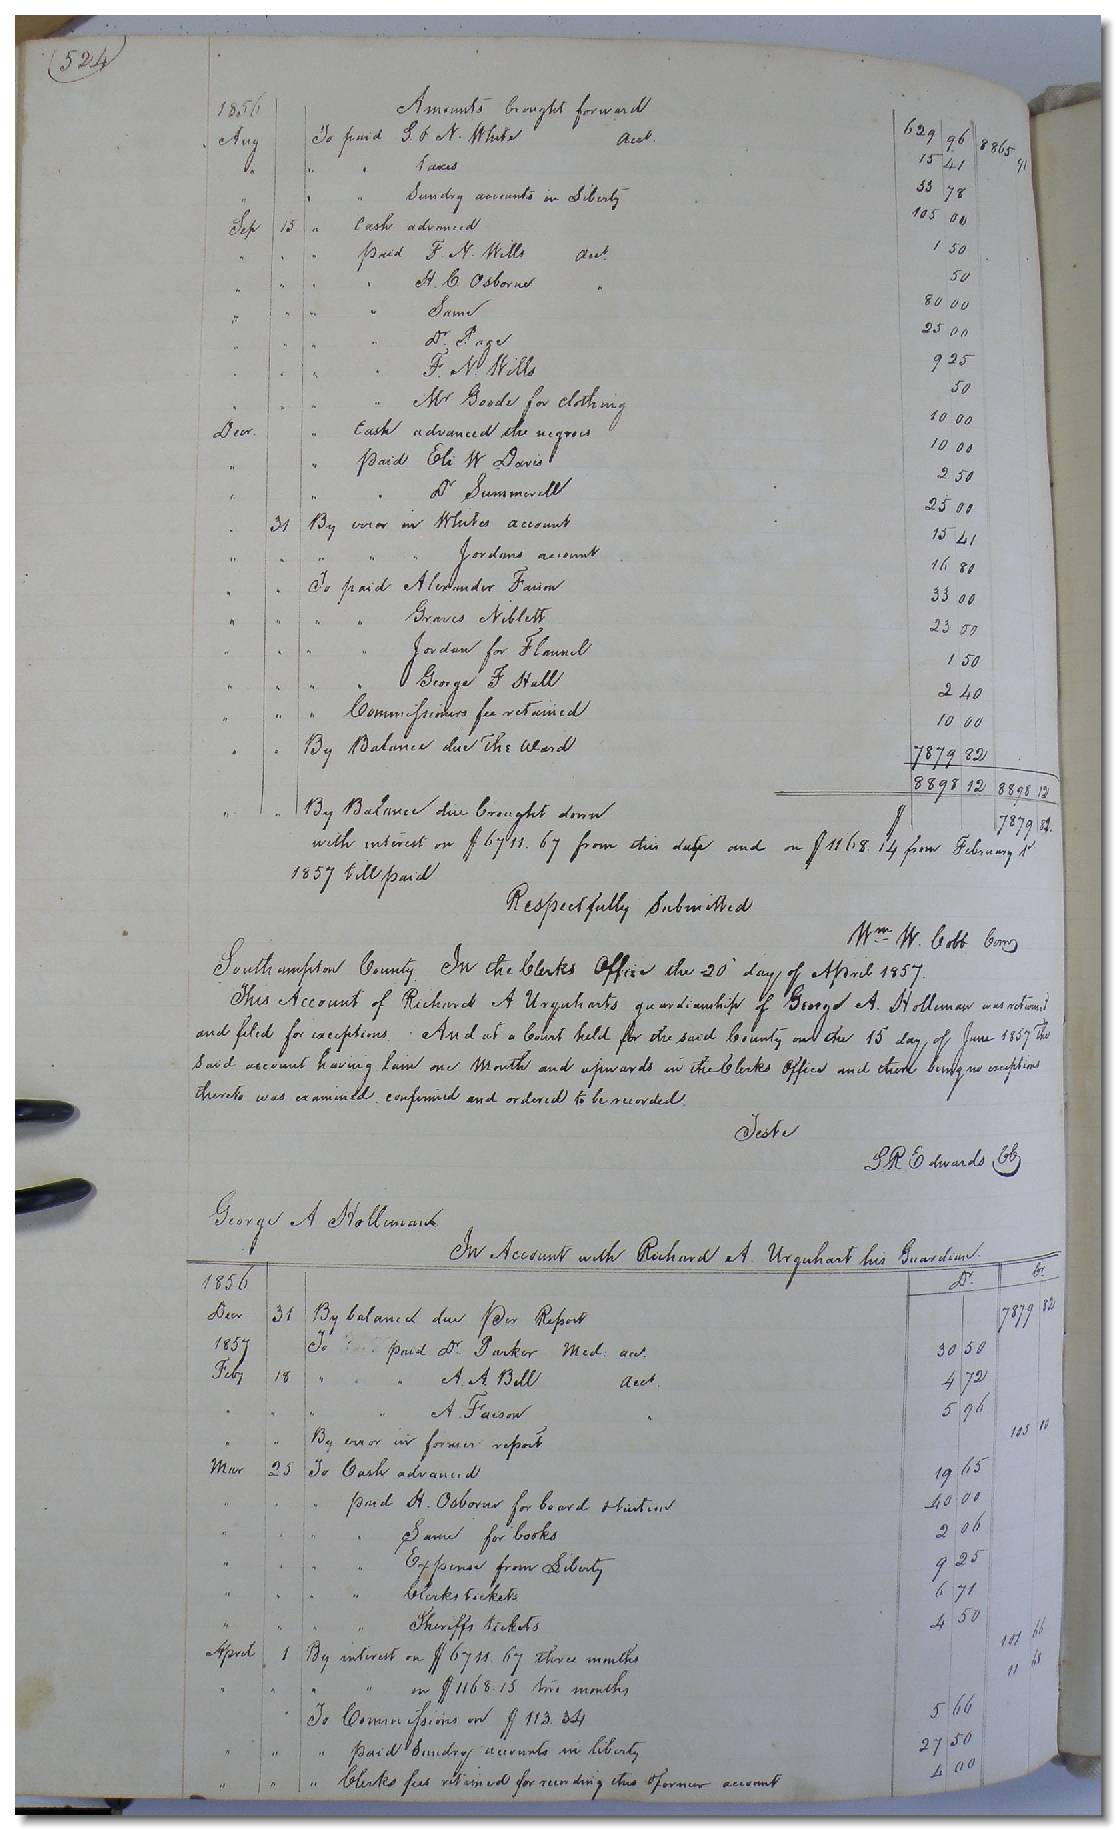 524
1856 Amounts brought forward 629 96 8865 91
Aug To paid G. & N. White acct. 15 41
" " " taxes 33 78
" " " Sundry accounts in Liberty 105 00
Sep 15 " Cash advanced 1 50
" " " paid F. N. Wills acct. 50
" " " " H. C. Osborne " 80 00
" " " " Same 25 00
" " " " Dr. Page 9 25
" " " " F. N. Wills 50
" " " " Mr Goode for clothing 10 00
Decr. " Cash advanced the negroes 10 00
" " paid Eli W Davis 2 50
" " " Dr Summerell 25 00
" 31 By error in Whites account 15 41
" " " " " Jordans account 16 80
" " To paid Alexander Faison 33 00
" " " " Graves Niblett 23 00
" " " " Jordan for Flannel 1 50
" " " " George F Hall 2 40
" " " Commissioners fee retained 10 00
" " By Balance due the Ward 7879 82
8898 12 8898 12
" " By Balance due brought down $ 7879 82
with interest on $6711.67 from this date and on $1168.14 from February 1st
1857 till paid
Respectfully Submitted
Wm. W. Cobb Comr
Southampton County In the Clerks Office the 20 day of April 1857.
This Account of Richard A Urquharts guardianship of George A. Holleman was returned
and filed for exceptions. And at a Court held for the said County on the 15 day of June 1857 the
said account having lain one Month and upwards in the Clerks Office and there being no exceptions
thereto was examined confirmed and ordered to be recorded.
Teste
L R Edwards CC
George A Holleman
In Account with Richard A. Urquhart his Guardian.
1856 Dr. Cr.
Decr 31 By balance due Per Report 7879 82
1857 To paid Dr. Parker Med. acc. 30 50
Feby 18 " " " A. A. Bell acct. 4 72
" " " " A. Faison " 5 96
" " By error in former report 105 00
Mar 25 To Cash advanced 19 65
" " " paid H. Osborne for board & tuition 40 00
" " " " Same for books 2 06
" " " " Expense from Liberty 9 25
" " " " Clerks tickets 6 71
" " " " Sheriffs tickets 4 50
April 1 By interest on $6711.67 three months 101 66
" " " " on $1168.15 two months 11 68
" To Commissions on $113.34 5 66
" " " paid Sundry accounts in liberty 27 50
" " " Clerks fees retained for recording this & former account 4 00